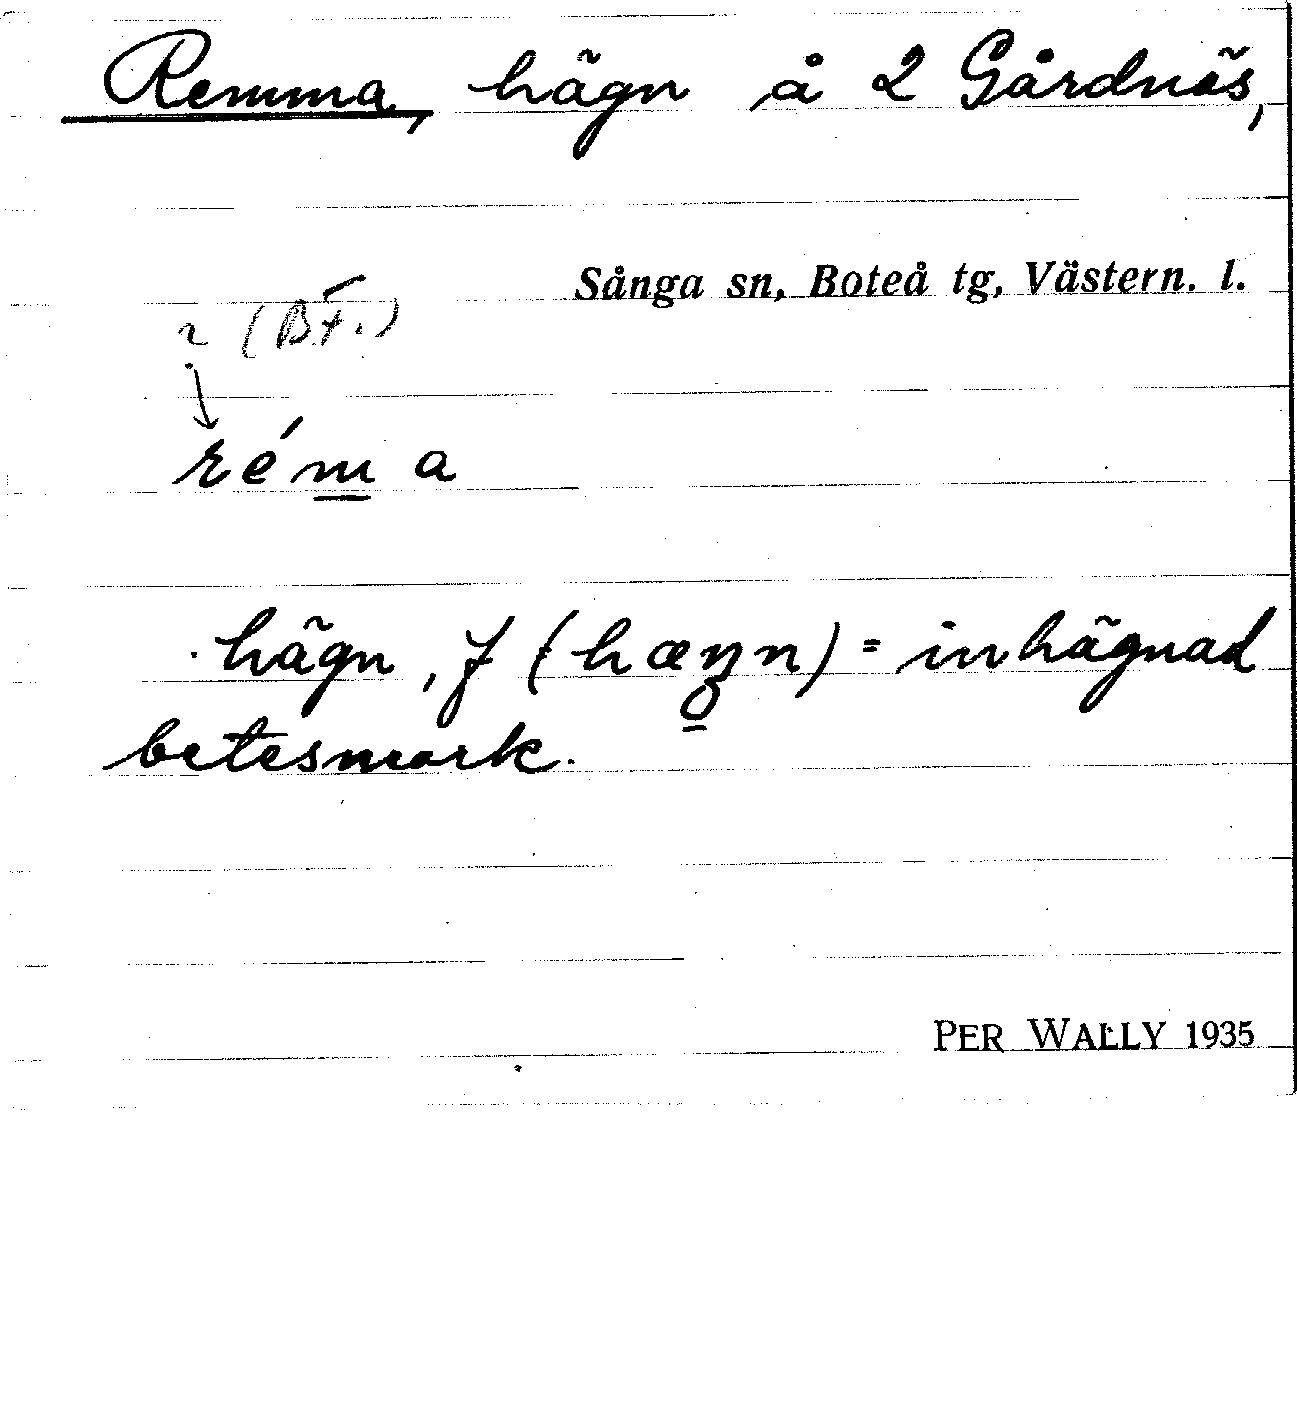 Remma, hägn å 2 Gårdnäs,
Sånga sn, Boteå tg, Västern. l.
r (Bf.)
réma
hägn, f (hæŋn) = inhägnad
betesmark.
PER WALLY 1935